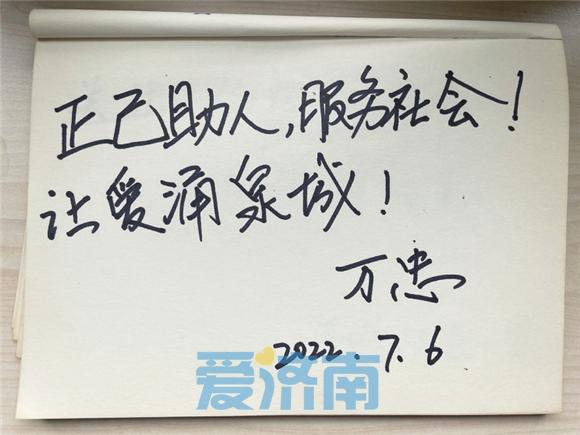 正己助人,服务社会!
让爱涌泉城!
万忠
2022.7.6
爱济南